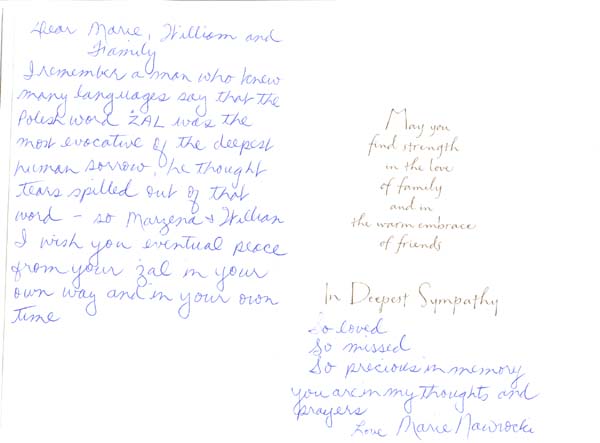 Dear Marie, William and
Family
I remember a man who knew
many languages say that the
Polish word ŻAL was the
most evocative of the deepest
human sorrow, he thought
tears spilled out of that
word – so Marzena & William
I wish you eventual peace
from your żal in your
own way and in your own
time
May you
find strength
in the love
of family
and in
the warm embrace
of friends
In Deepest Sympathy
So loved
So missed
So precious in memory
you are in my thoughts and
prayers
Love Marie Nawrocki